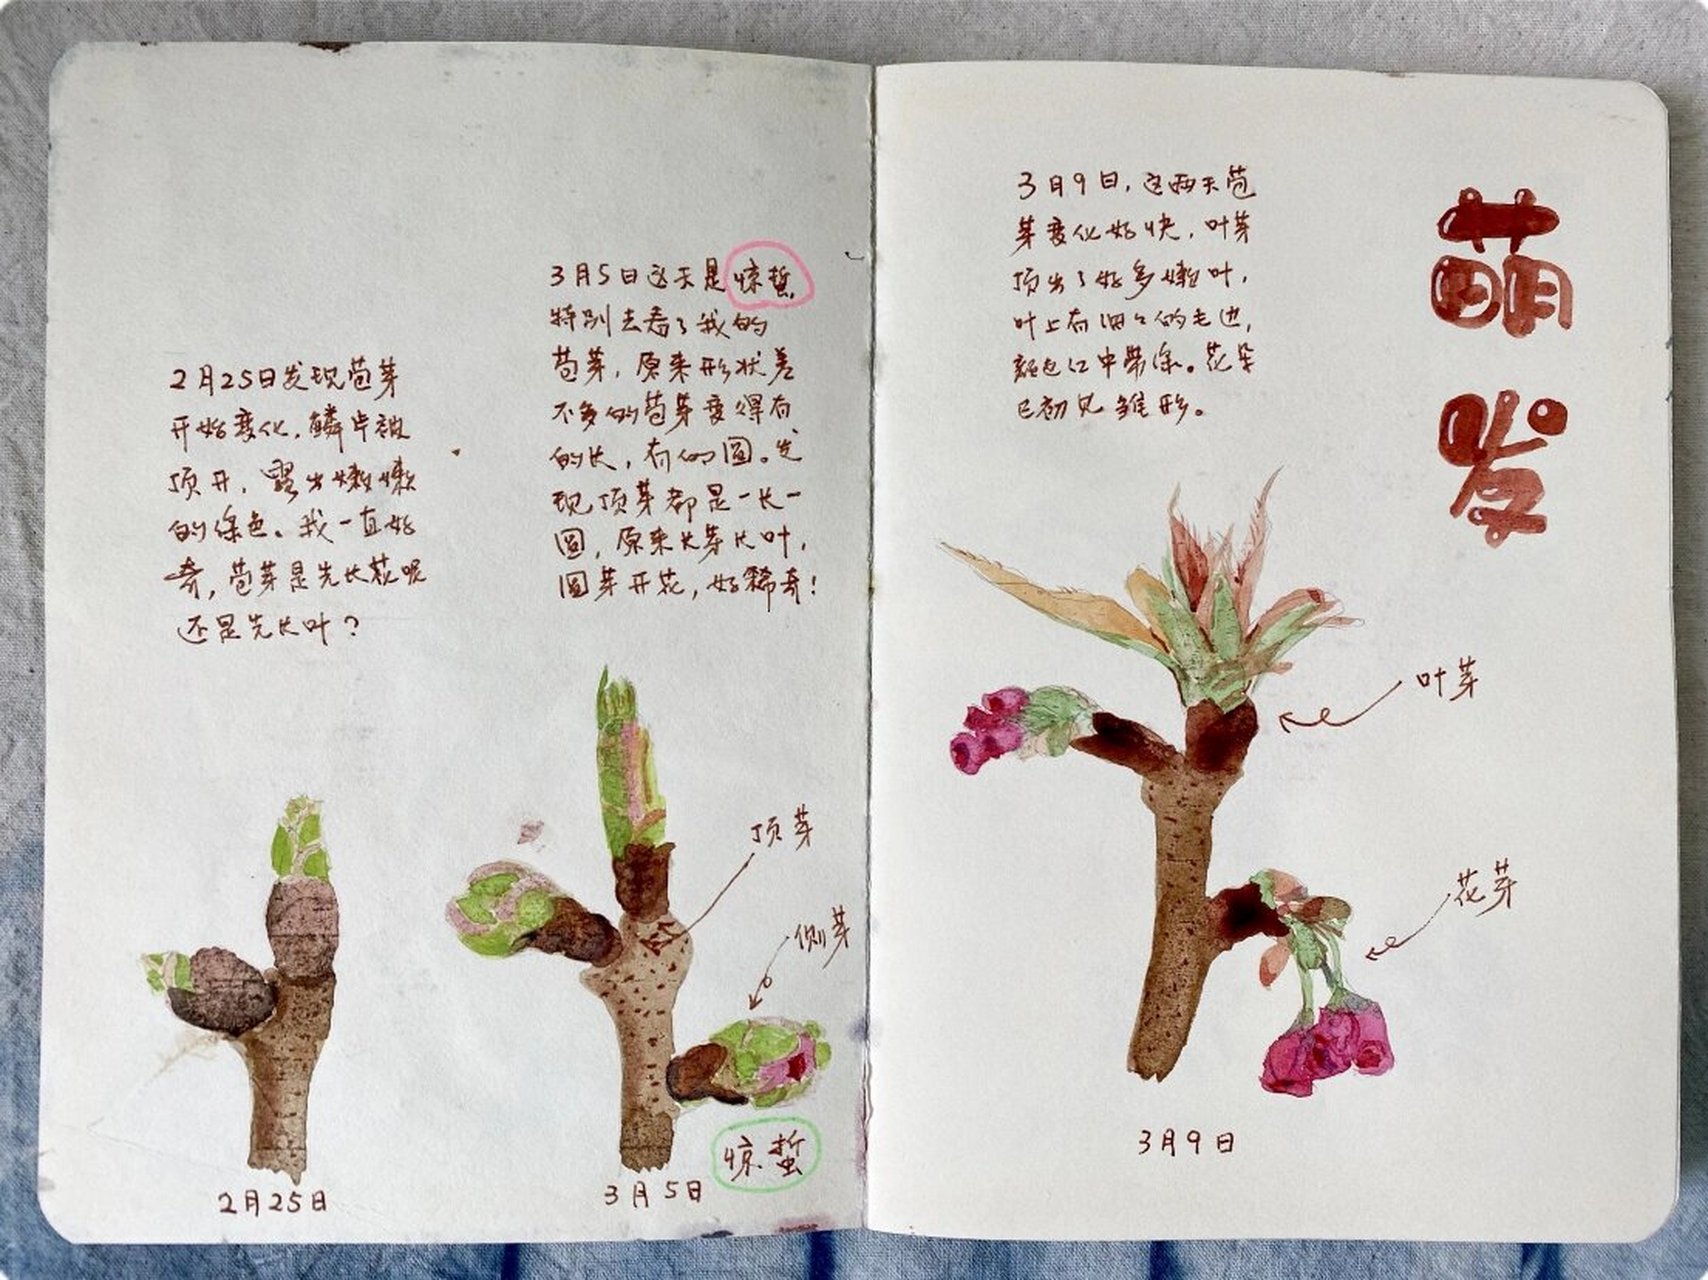 2月25日发现苞芽
开始变化，鳞片被
顶开，露出嫩嫩
的绿色。我一直好
奇，苞芽是先长花呢
还是先长叶？
2月25日
3月5日这天是惊蛰，
特别去看了我的
苞芽，原来形状差
不多的苞芽变得有
的长，有的圆。发
现顶芽都是一长一
圆，原来长芽长叶，
圆芽开花，好稀奇！
顶芽
侧芽
惊蛰
3月5日
萌发
3月9日，这两天苞
芽变化好快，叶芽
顶出了好多嫩叶，
叶上有细细的毛边，
颜色红中带绿。花朵
已初见雏形。
叶芽
花芽
3月9日